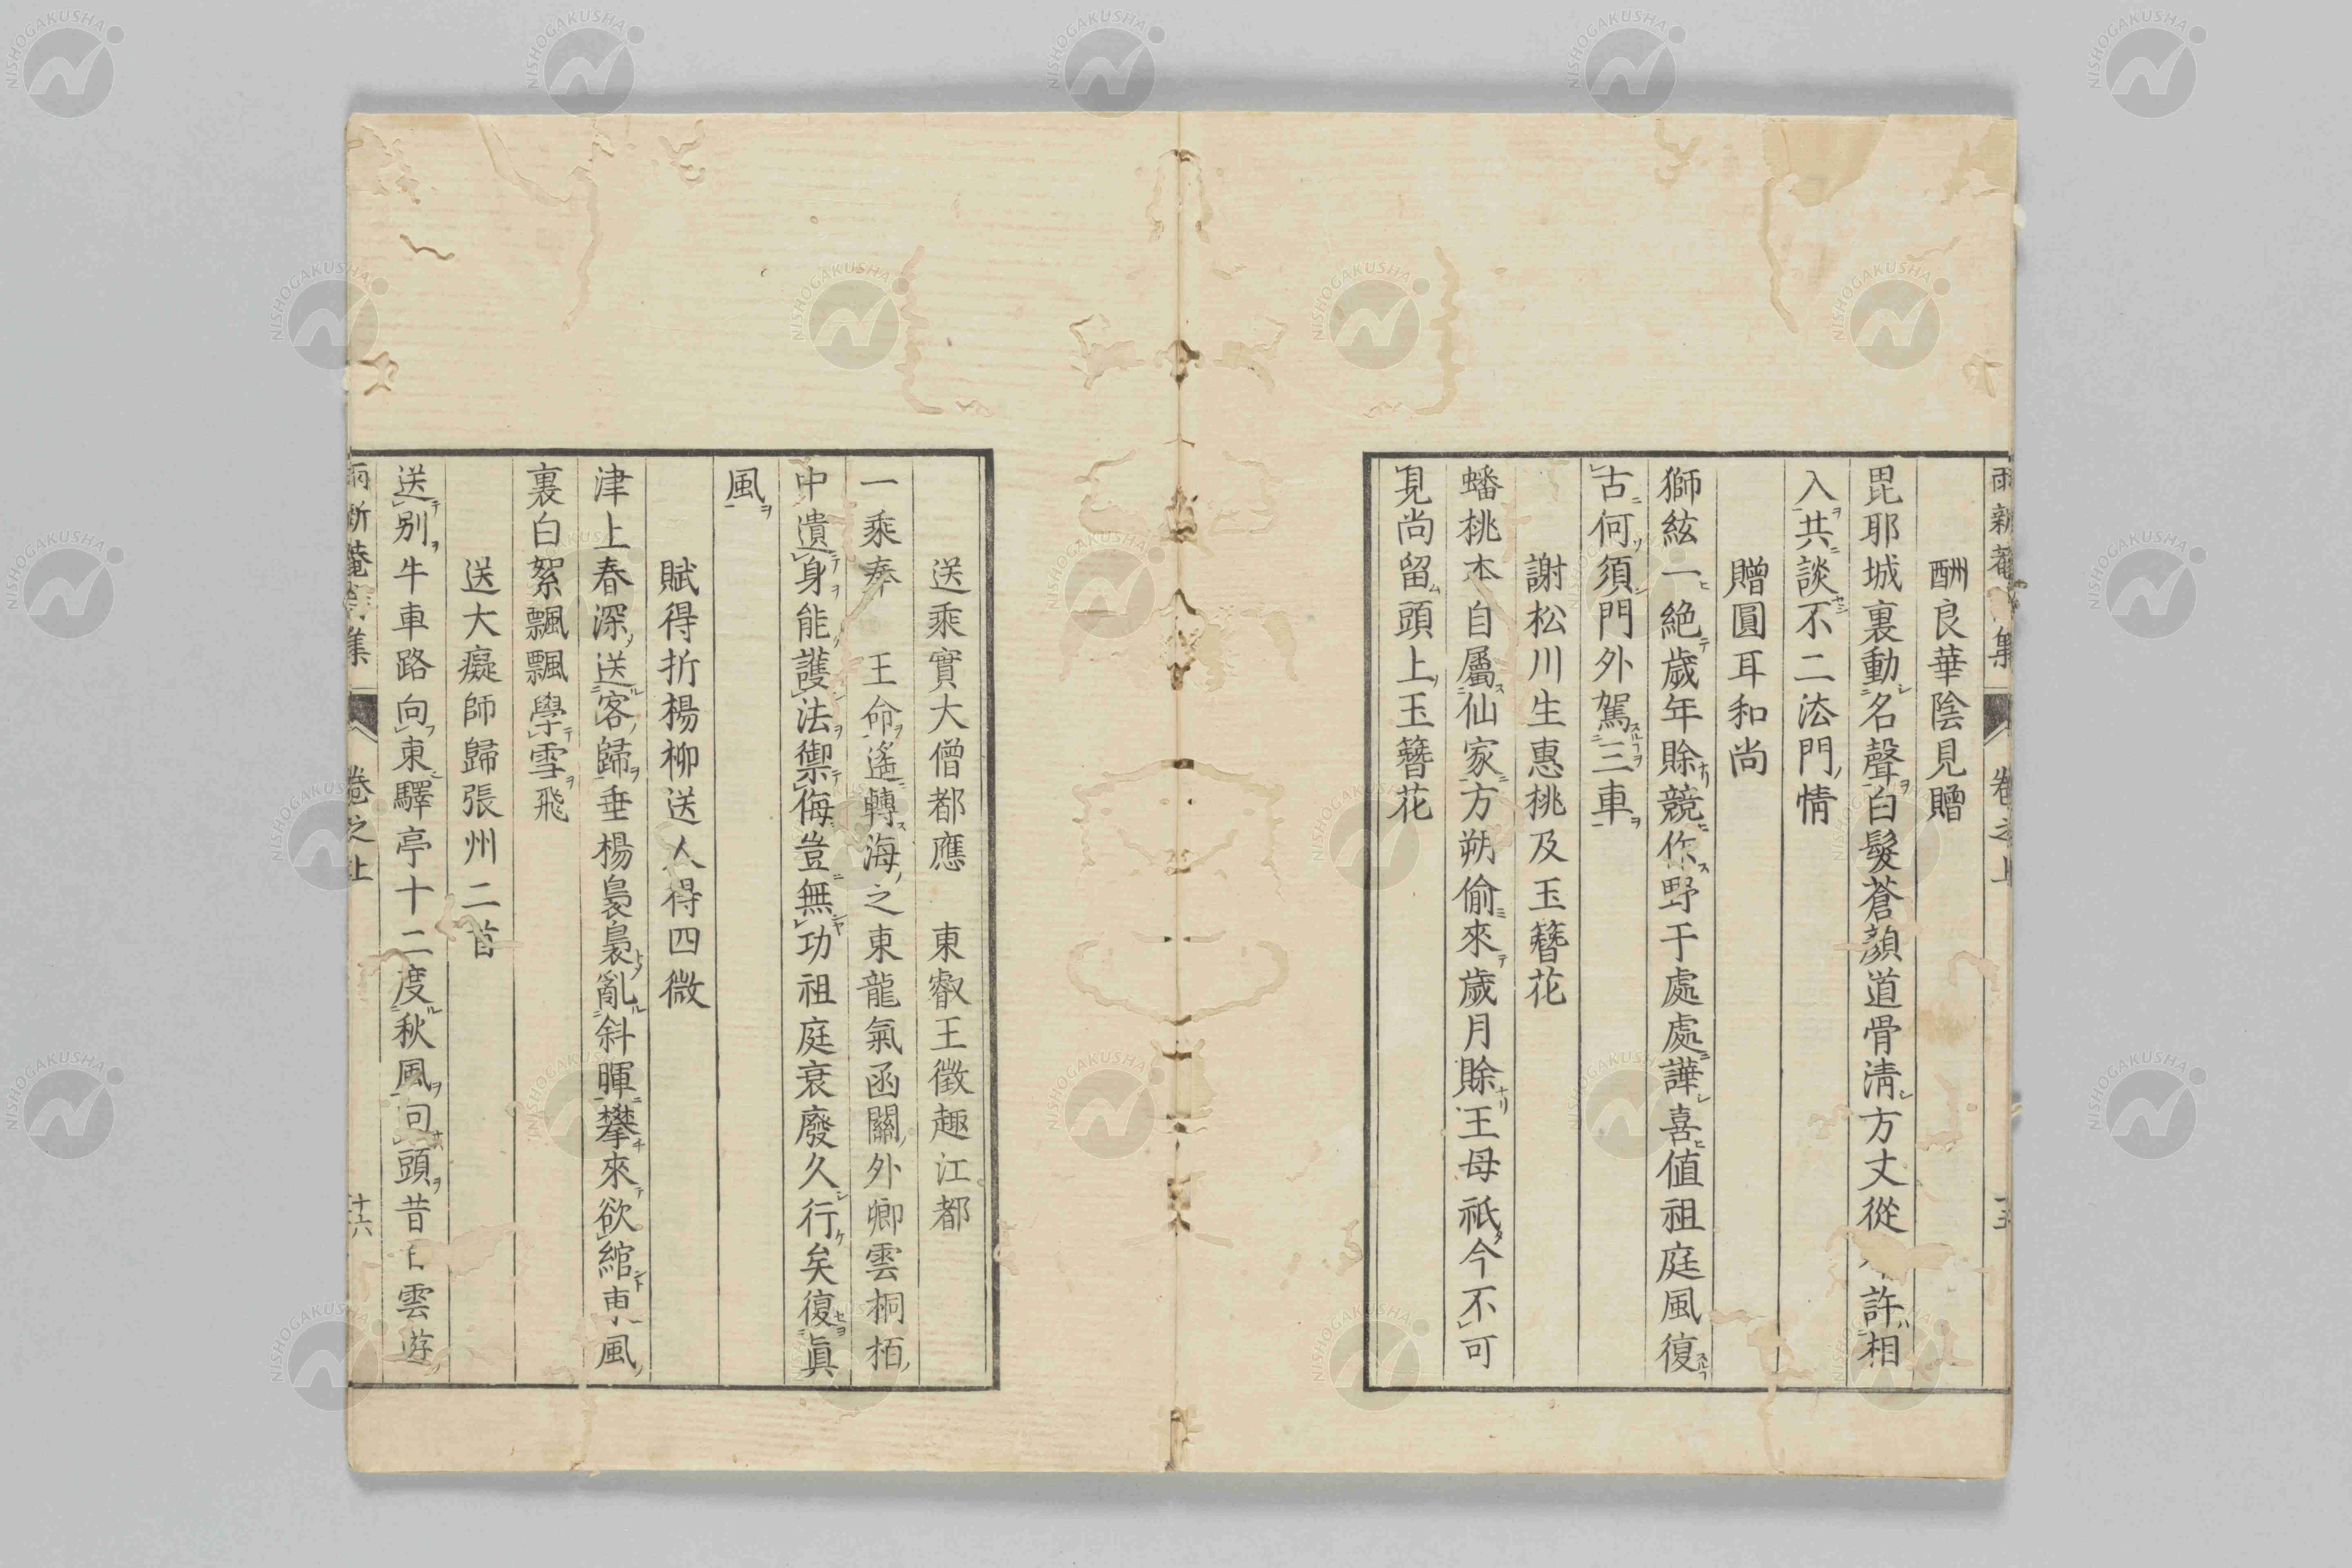 酬良華陰見贈
毘耶城裏動名聲白髮蒼顔道骨清方丈從許相
入共談不二法門情
贈圓耳和尚
獅絃一絶歲年賒競作野干處處譁喜値祖庭風復
古何須門外駕三車
謝松川生惠桃及玉簪花
蟠桃本自屬仙家方朔偷來歲月賒王母祇今不可
見尚留頭上玉簪花
送乘實大僧都應 東叡王徵趣江都
一乘奉 王命遙轉海之東龍氣函關外卿雲桐栢
中遺身能護法禦侮豈無功祖庭衰廢久行矣復眞
風
賦得折楊柳送人得四微
津上春深送客歸垂楊裊裊亂斜暉攀來欲綰東風
裏白絮飄飄學雪飛
送大癡師歸張州二首
送別牛車路向東驛亭十二度秋風回頭昔日雲遊
卷之上
十六
NISHOGAKUSHA